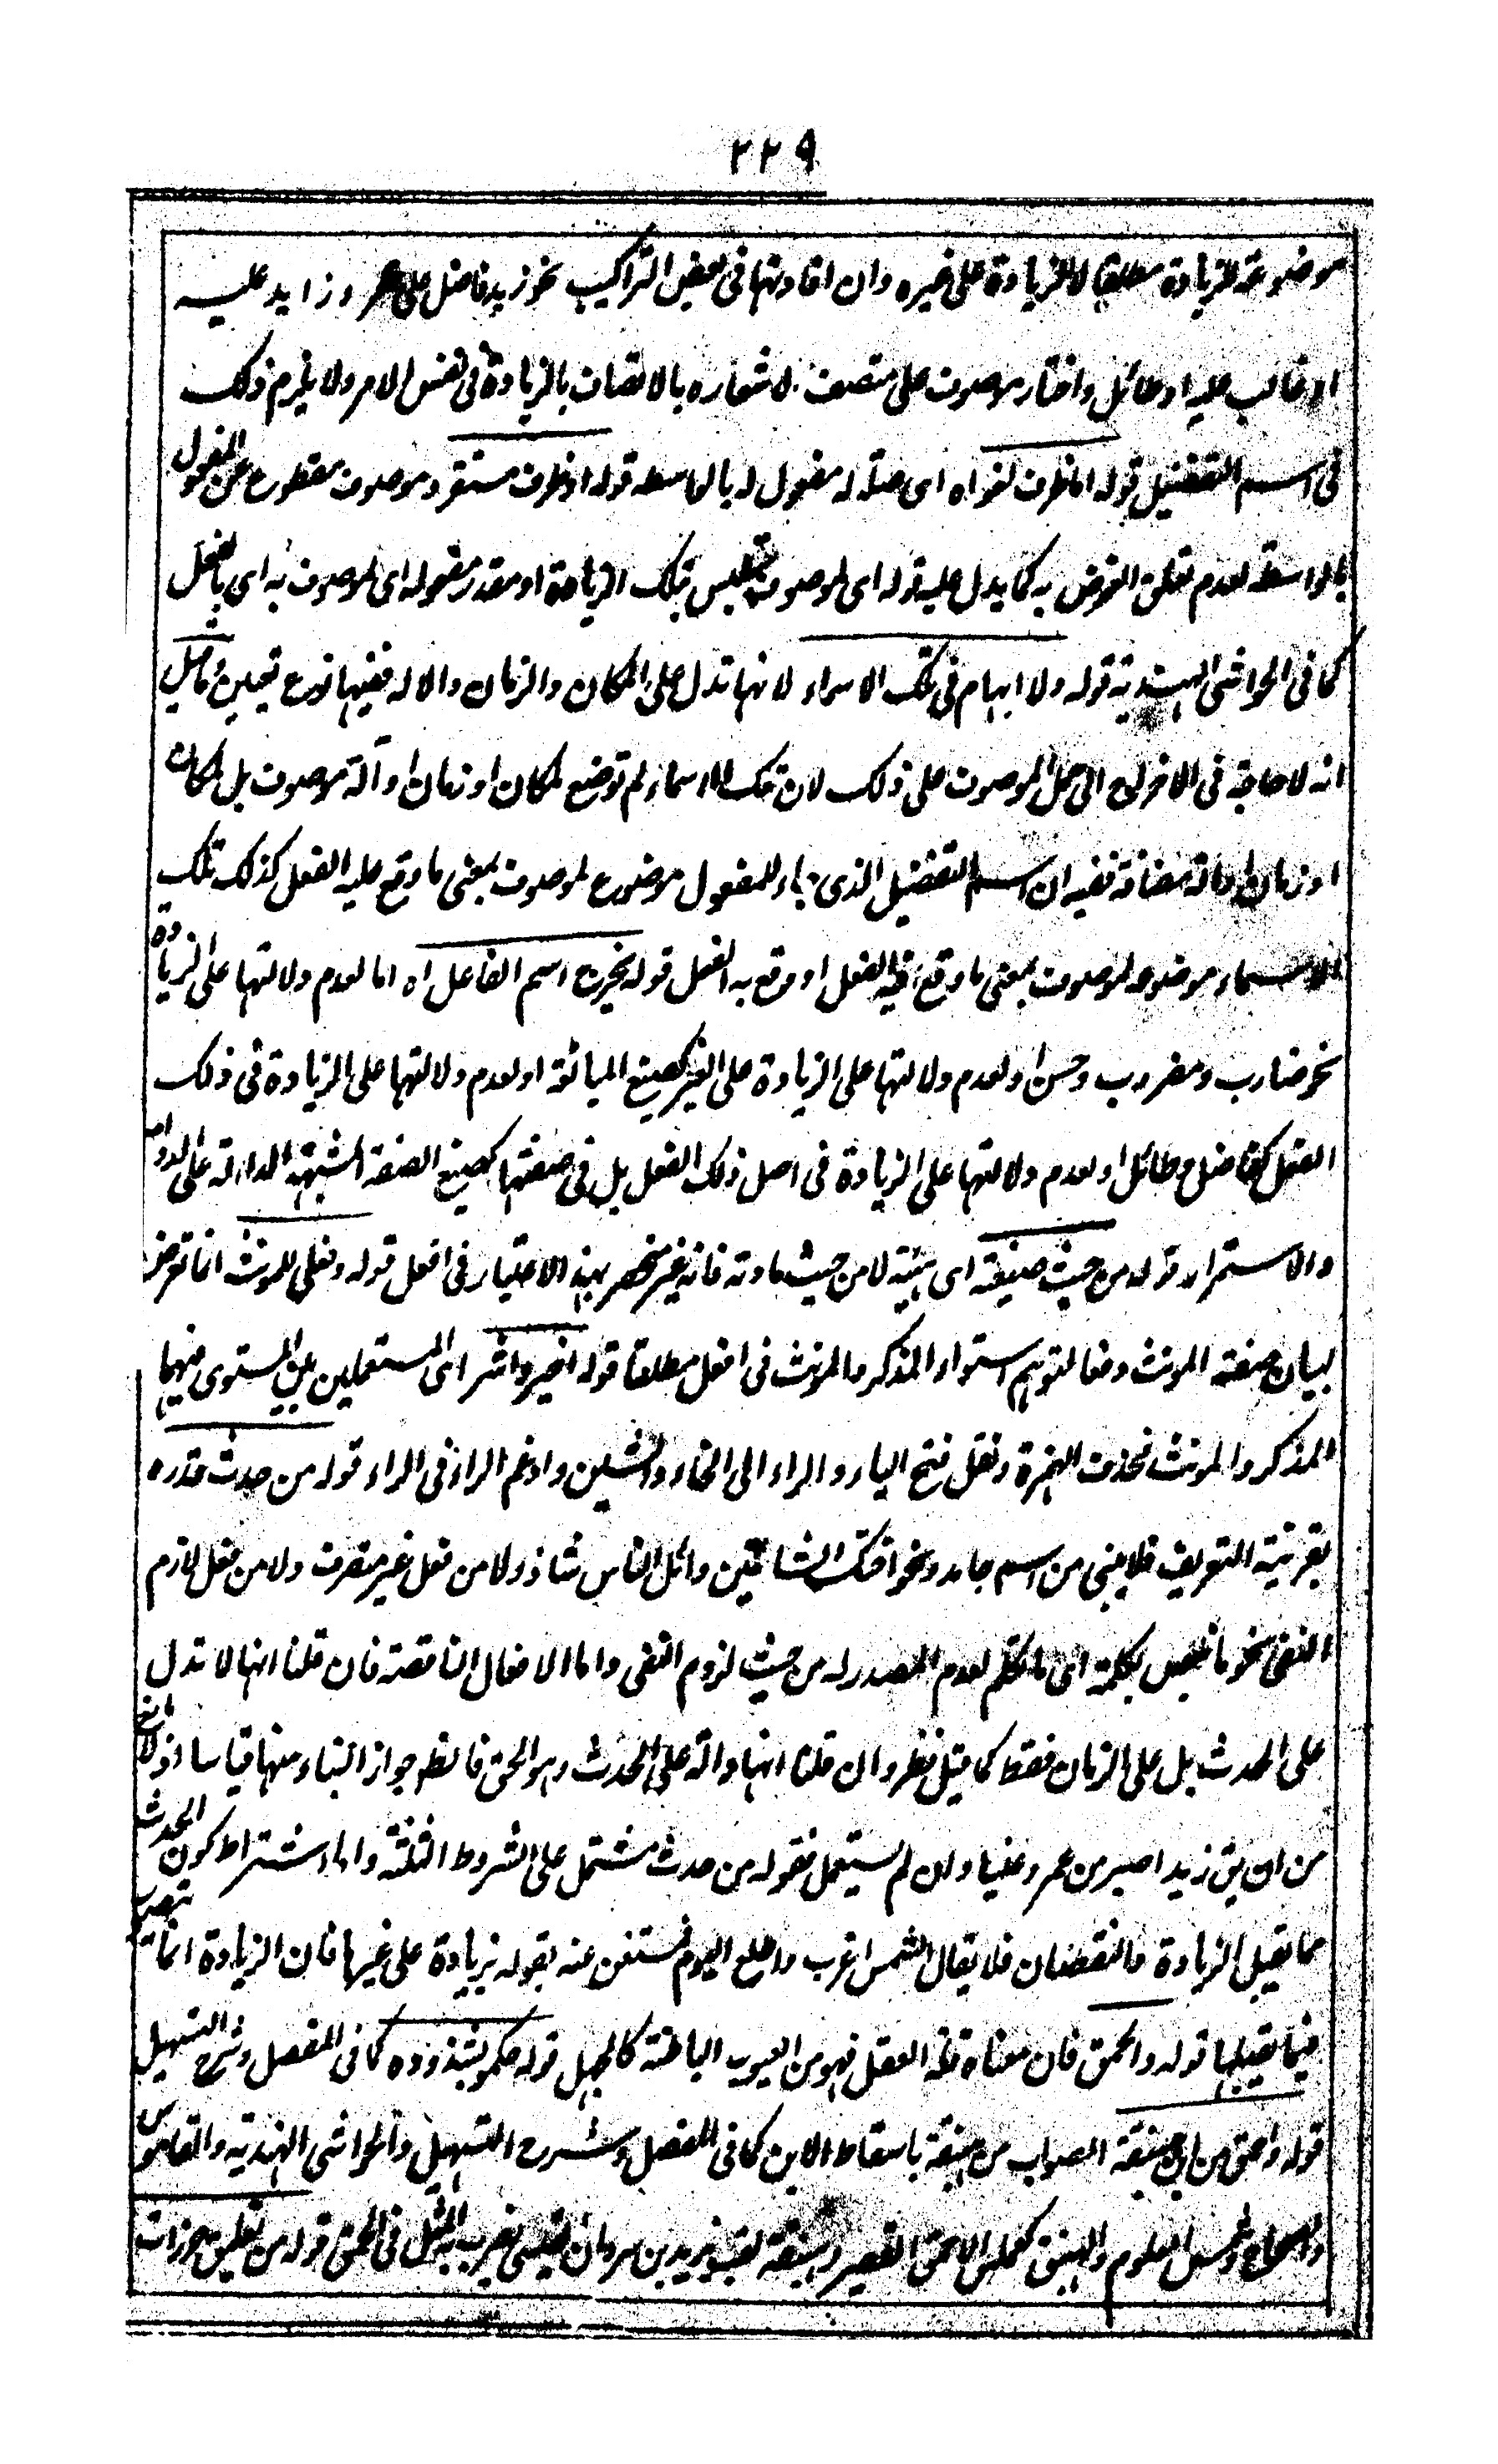 ٢٢٩
موضوعة للزيادة مطلقا لا للزيادة على غيره وان افادتها فى بعض التراكيب نحو زيد فاضل على عمرو زايد عليه
او غالب عليه او طائل واختار موصوف على متصف لاشعاره بالاتصاف بالزيادة فى نفس الامر ولا يلزم ذلك
فى اسم التفضيل قوله اما ظرف لغو اه اى صلة له مفعول له بالواسطة قوله او ظرف مستقر وموصوف مقطوع عن المفعول
بالواسطة لعدم تعلق الغرض به كما يدل عليه قوله اى لموصوف متلبس بتلك الزيادة او مقدر مفعوله اى لموصوف به اى بالفعل
كما فى الحواشى الهندية قوله ولا ابهام فى تلك الاسماء لانها تدل على المكان والزمان والالة ففيها نوع تعيين وما قيل
انه لا حاجة فى الاخراج الى حمل الموصوف على ذلك لان تلك الاسماء لم توضع لمكان او زمان او آلة موصوف بل لمكان
او زمان او آلة مضافة ففيه ان اسم التفضيل الذى جاء للمفعول موضوع لموصوف بمعنى ما وقع عليه الفعل كذلك تلك
الاسماء موضوعة لموصوف بمعنى ما وقع فيه الفعل او وقع به الفعل قوله يخرج اسم الفاعل اه اما لعدم دلالتها على الزيادة
نحو ضارب ومضروب وحسن او لعدم دلالتها على الزيادة على الغير كصيغ المبالغة او لعدم دلالتها على الزيادة فى ذلك
الفعل كفاضل وطائل او لعدم دلالتها على الزيادة فى اصل ذلك الفعل بل فى صفتها كصيغ الصفة المشبهة الدالة على الدوام
والاستمرار قوله من حيث صيغته اى هيئته لا من حيث مادته فانه غير منحصر بهذا الاعتبار فى افعل قوله وفعلى للمونث انما تعرض
لبيان صيغة المونث دفعا لتوهم استواء المذكر والمونث فى افعل مطلقا قوله اخير واشر اى المستعملين بمن المستوى فيها
المذكر والمونث فحذفت الهمزة ونقل فتح الياء والراء الى الخاء والشين وادغم الراء فى الراء قوله من حدث قدره
بقرينة التعريف فلا يبنى من اسم جامد ونحو احنك الشاتين وائل الناس شاذ ولا من فعل غير متصرف ولا من فعل لازم
النفى نحو ما نبس بكلمة اى ما تكلم لعدم المصدر له من حيث لزوم النفى واما الافعال الناقصة فان قلنا انها لا تدل
على الحدث بل على الزمان فقط كما قيل فظهر وان قلنا انها دالة على الحدث وهو الحق فالظ جواز البناء منها قياسا اذ لا مانع
من ان يق زيد اصير من عمرو غنيا وان لم يستعمل فقوله من حدث مشتمل على الشروط الثلثة واما اشتراط كون الحدث
مما يقبل الزيادة والنقصان فلا يقال الشمس اغرب واطلع اليوم فمستغن عنه بقوله بزيادة على غيرها فان الزيادة انما تتصور
فيما يقبلها قوله والحمق فان معناه قلة العقل فهو من العيوب الباطنة كالجهل قوله حكم بشذوذه كما فى المفصل وشرح التسهيل
قوله واحمق من ابن هبنقة الصواب من هبنقة باسقاط الابن كما فى المفصل وشرح التسهيل والحواشى الهندية والقاموس
والصحاح وشمس العلوم والهبنق كعملس الاحمق القصير وهبنقة لقب يزيد بن ثروان قيسى يضرب به المثل فى الحمق قوله من تعلق